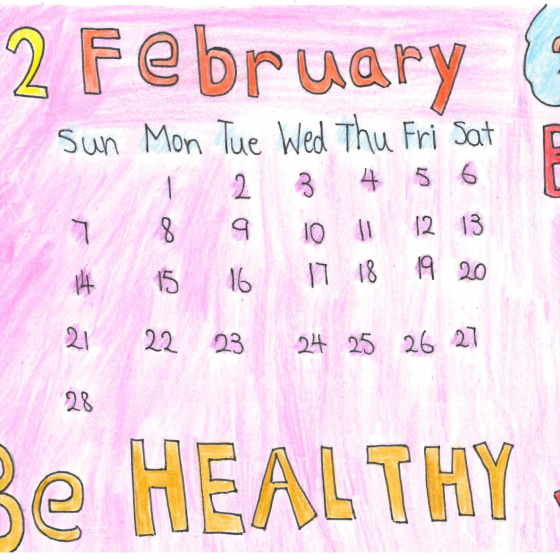 2 February
Sun Mon Tue Wed Thu Fri Sat
1 2 3 4 5 6
7 8 9 10 11 12 13
14 15 16 17 18 19 20
21 22 23 24 25 26 27
28
Be HEALTHY